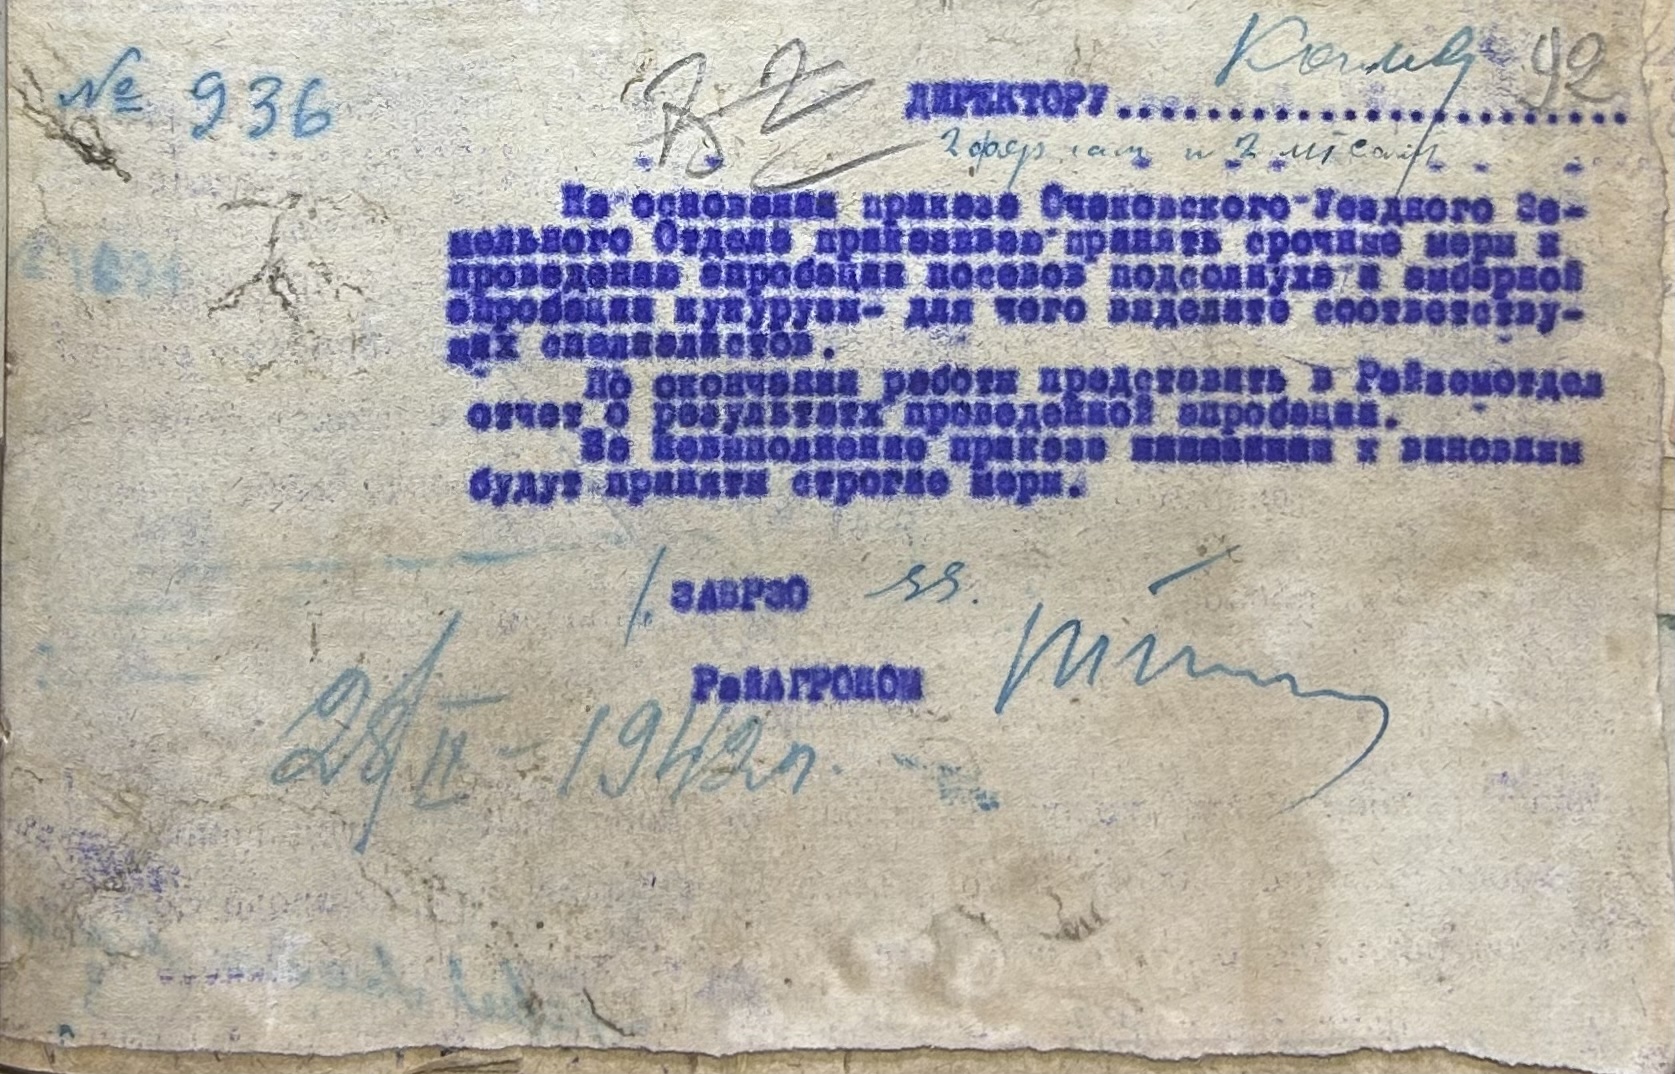 № 936
92
ДИРЕКТОРУ
На основании приказа Очаковского Уездного Зе-
мельного Отдела приказиваю принять срочние мери к
проведению апробации посевов подсолнуха и виборной
апробации кукурузи- для чего виделите соответству-
щих специалистов.
По окончании работи представить в Райземотдел
отчет о результатах проведенной апробации.
За невиполнение приказа к виновним
будут приняти строгие мери.
ЗАВРЗО
РайАГРОНОМ
28/II - 1942 г.